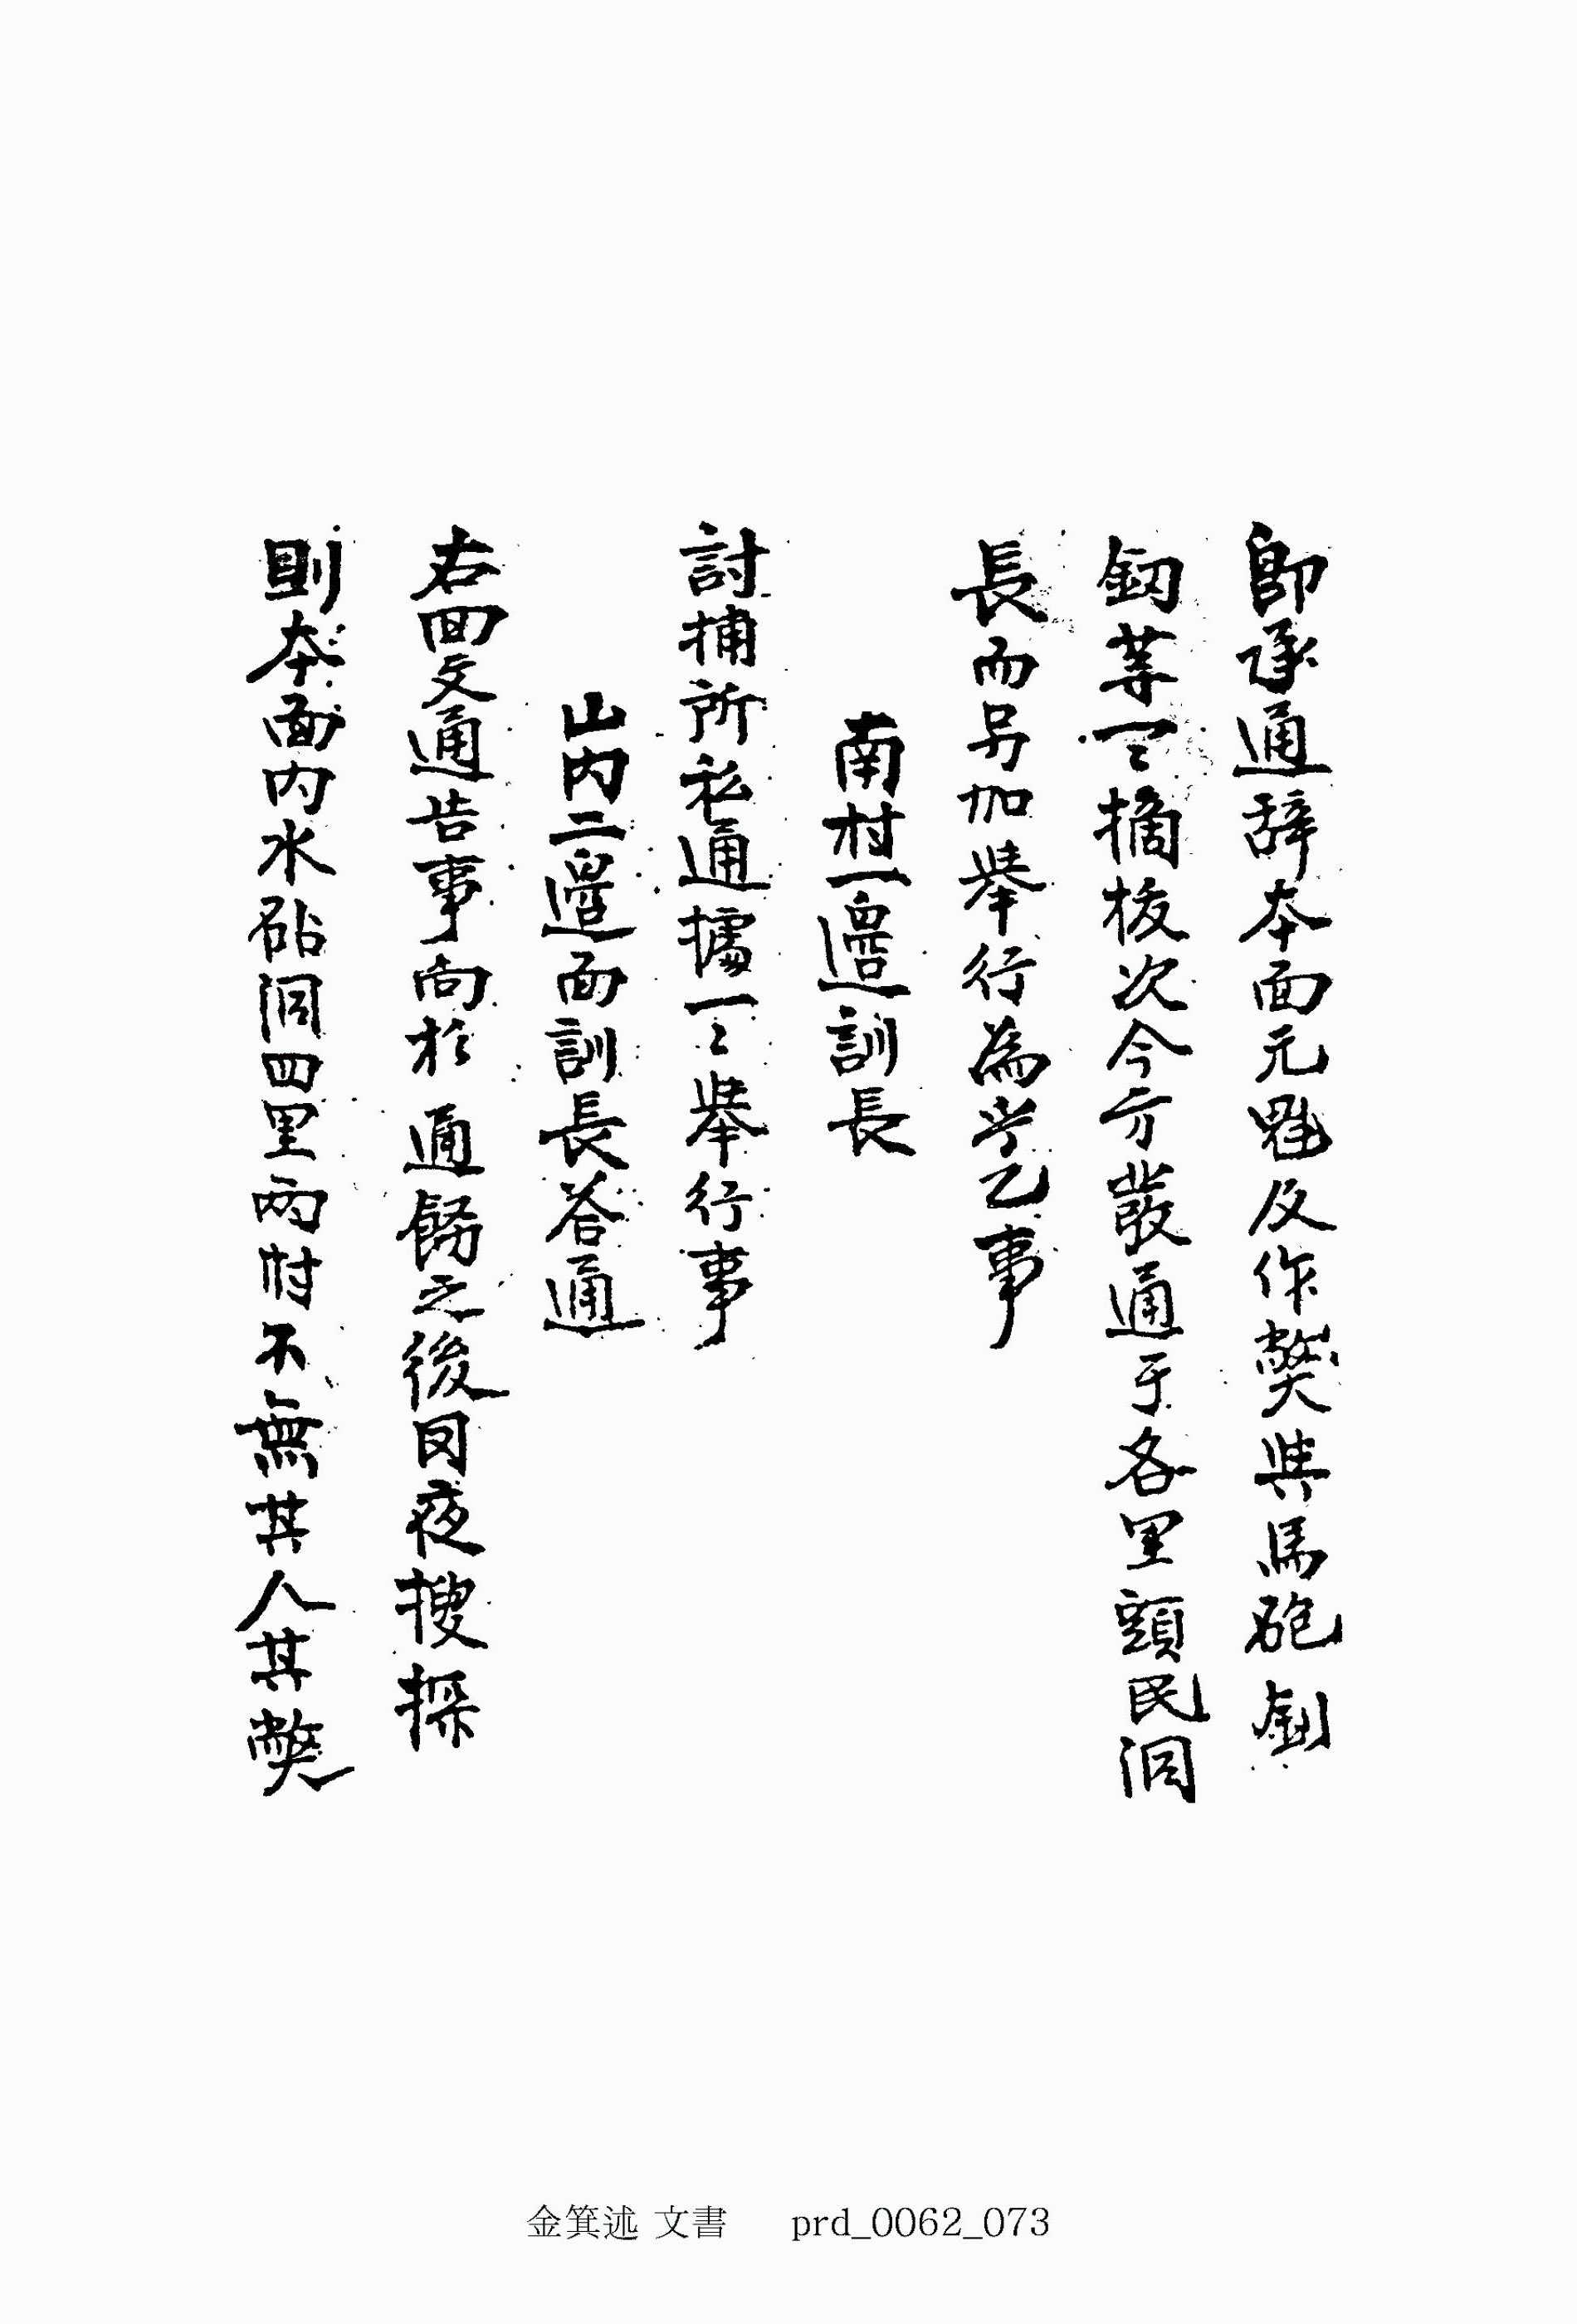 卽承通辭本面元魁及作獘與馬砲釗
釰等一一摘核次今方發通于各里頭民洞
長而另加擧行爲乎乙事
南村一邊訓長
討捕所私通據一〻擧行事
山內二邊面訓長答通
右回文通告事向於 通飭之後因夜搜探
則本面內水砧洞四里兩村不無其人其獘
金箕述 文書 prd_0062_073